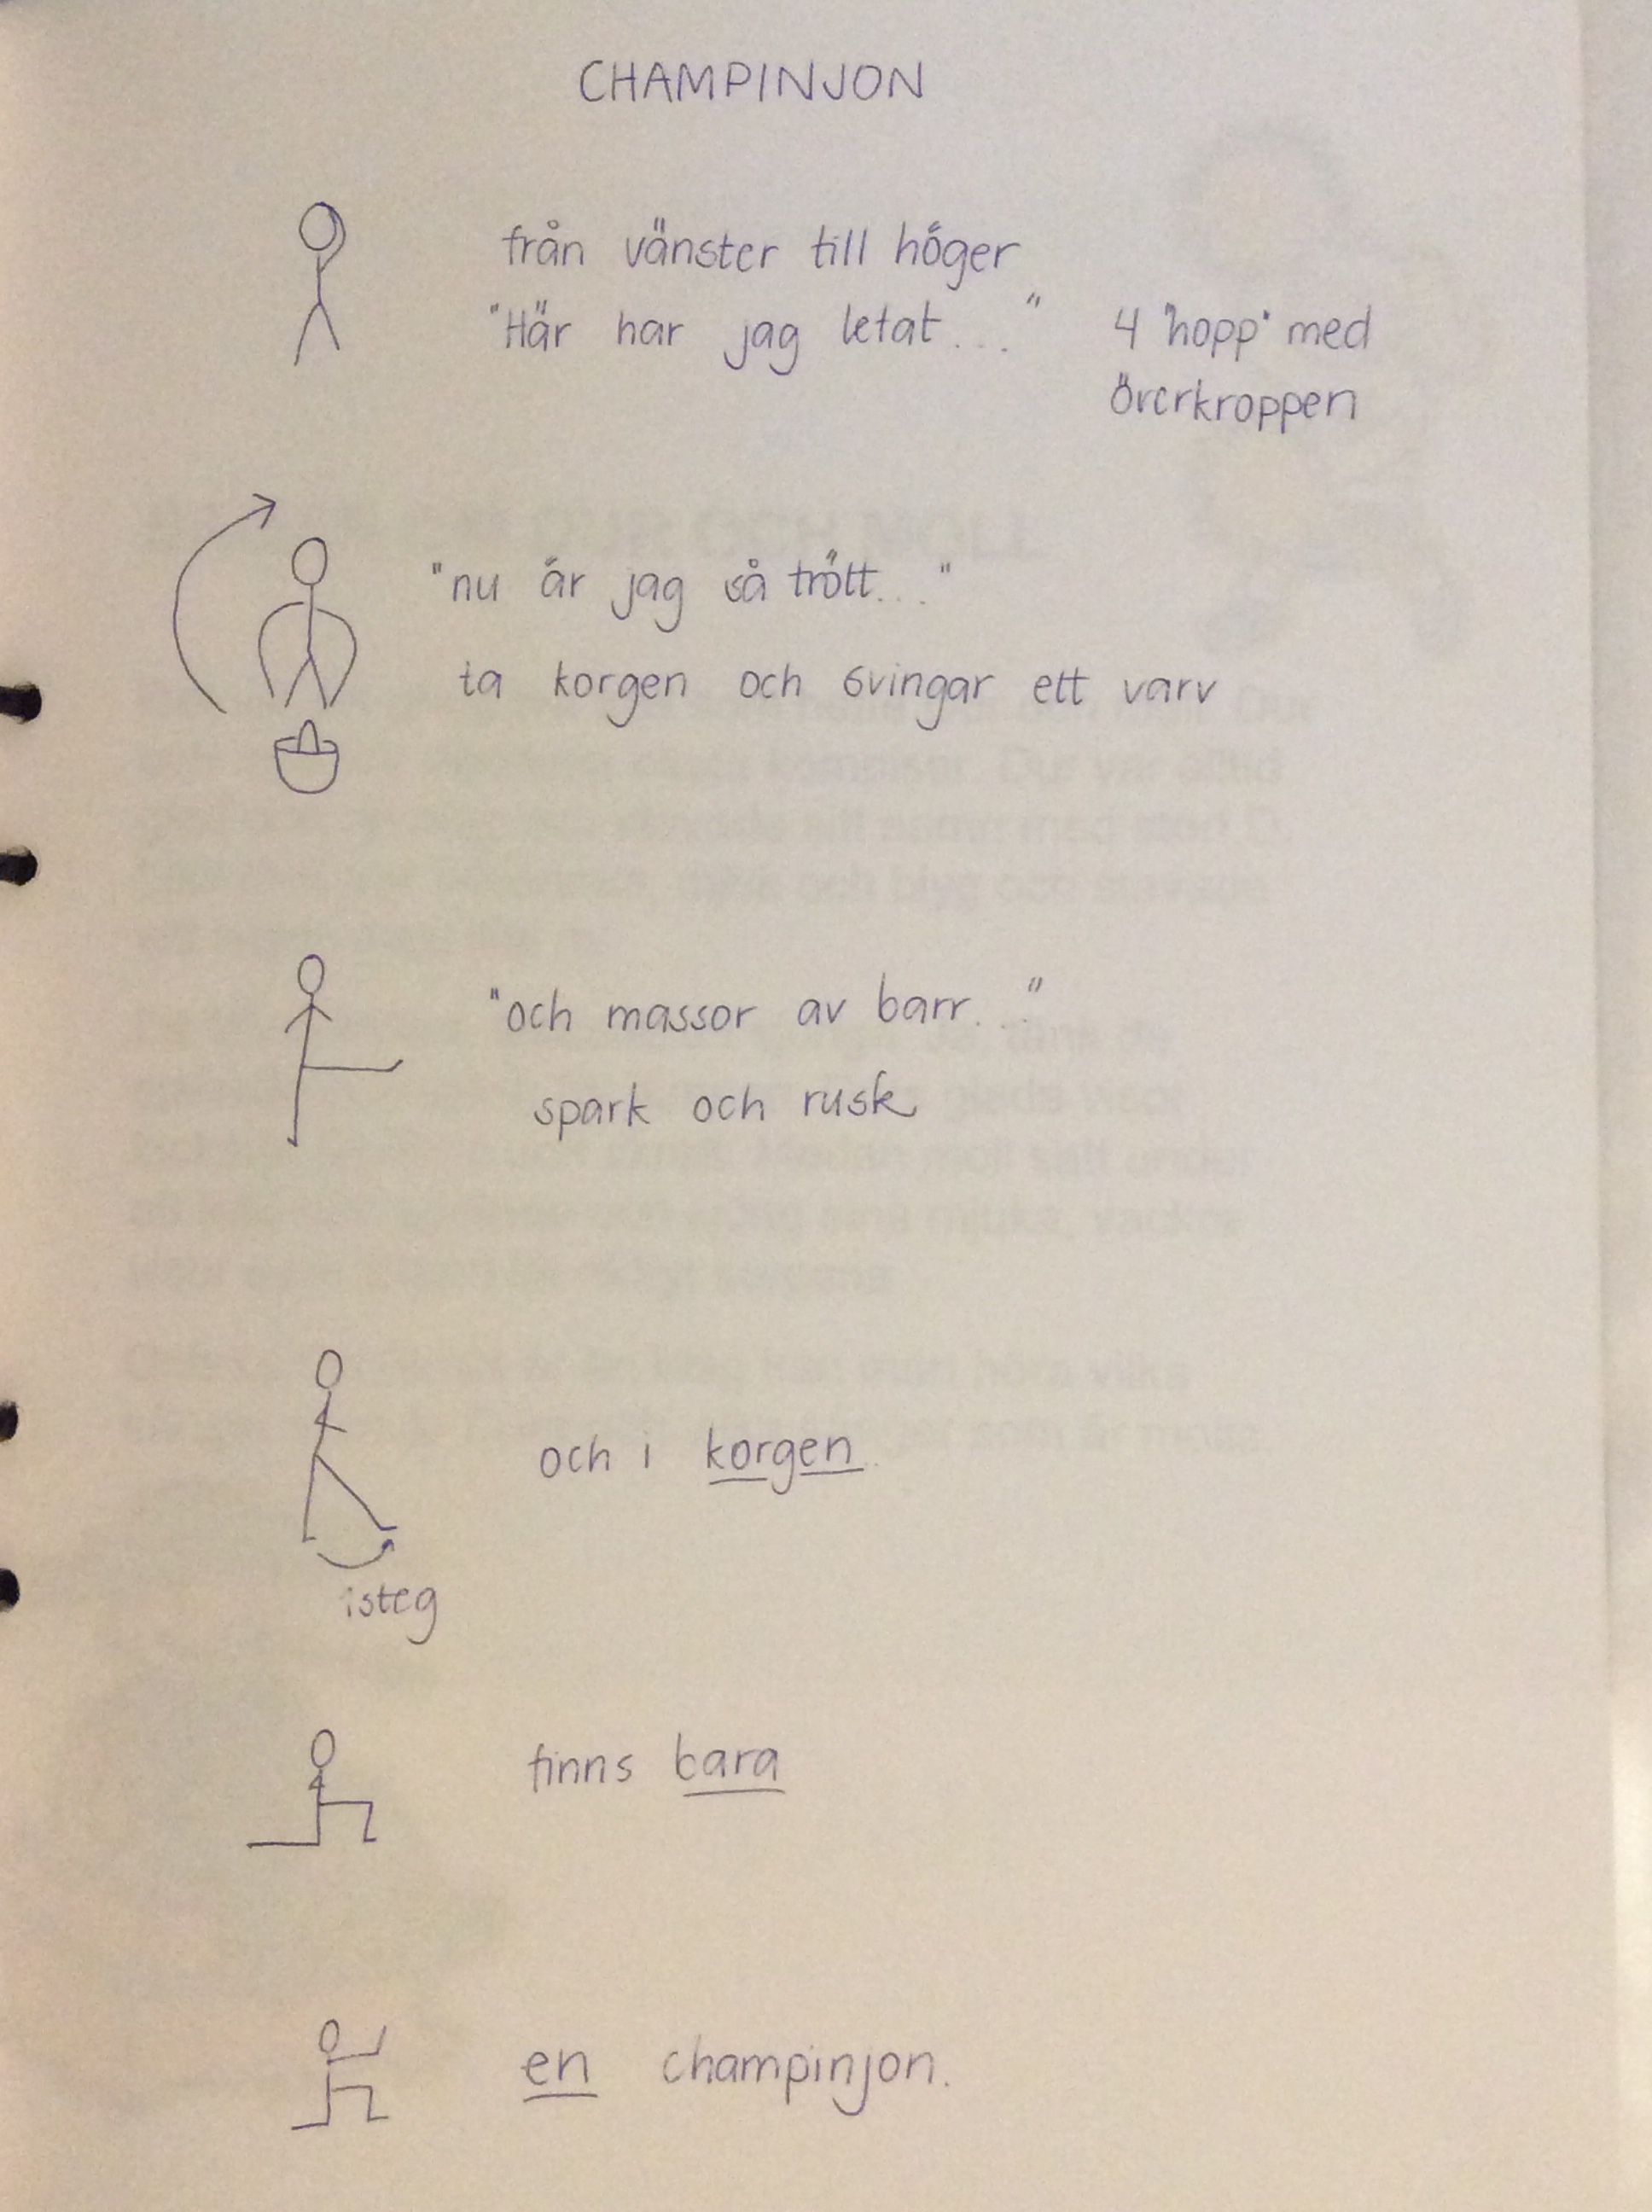 CHAMPINJON
från vänster till höger
"Här har jag letat..." 4 "hopp" med
överkroppen
"nu är jag så trött..."
ta korgen och svingar ett varv
"och massor av barr..."
spark och rusk
och i korgen
1 steg
finns bara
en champinjon.